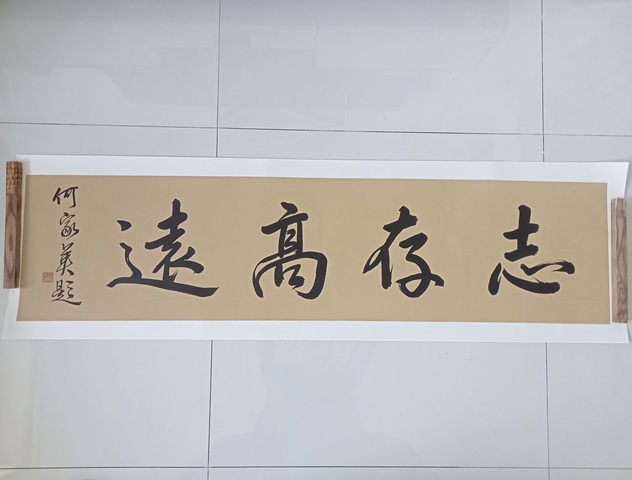 志存高遠
何家英題